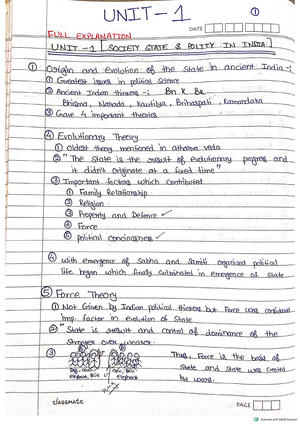 UNIT-1
①
DATE
FULL EXPLANATION
UNIT-1 [SOCIETY STATE & POLITY IN INDIA]
① Origin and evolution of the state in ancient India -:
① Greatest issues in political Science
② Ancient Indian thinkers -: Bn K Bk
Bhisma, Narada, Kautilya, Brihaspati, Kamandaka
③ Gave 4 important theories
④ Evolutionary Theory
① oldest theory mentioned in atharva veda
② "The State is the result of evolutionary progress and
it didn't originate at a fixed time"
③ Important factors which contributed
① Family Relationship
② Religion
③ Property and Defence ✓
④ Force
⑤ political conciousness ✓
④ with emergence of Sabha and Samiti organised political
life began which finally culminated in emergence of state
⑤ Force Theory
① Not Given by Indian political thinkers but Force was considered
imp. factor in evolution of State
② "State is result and control of dominance of the
Stronger over weaker.
③ Thus, Force is the basis of
State and State was created
by wars.
classmate
PAGE
Scanned with OKEN Scanner